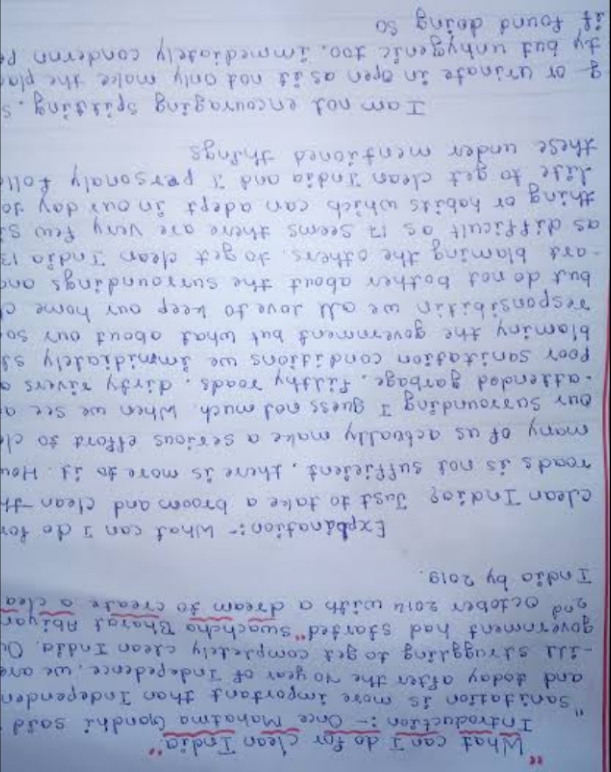 "What can I do for clean India"
Introduction :- Once Mahatma Gandhi said
"Sanitation is more important than Independen
and today after the 70 year of Indepedence, we are
-ill struggling to get completely clean India. Ou
government had started "Swachcha Bharat Abiyan
2nd october 2014 with a dream to create a clea
India by 2019.
Explination :- What can I do for
clean India? Just to take a broom and clean th
roads is not sufficient, there is more to it. How
many of us actually make a serious effort to cle
our surrounding I guess not much. When we see a
-attended garbage, filthy roads, dirty rivers a
Poor sanitation conditions we immidiately st
blaminy the government but what about our so
responsibitin we all love to keep our home c
but do not bother about the surroundings and
-art blaming the others. to get clean India is
as difficult as it seems there are very few si
thing or habits which can adept in our day to
life to get clean India and I personaly follo
these under mentioned things
I am not encouraging spitting, s
g or urinate in open as it not only make the plac
ty but unhygenic too, immediately condernn pe
if found doing so